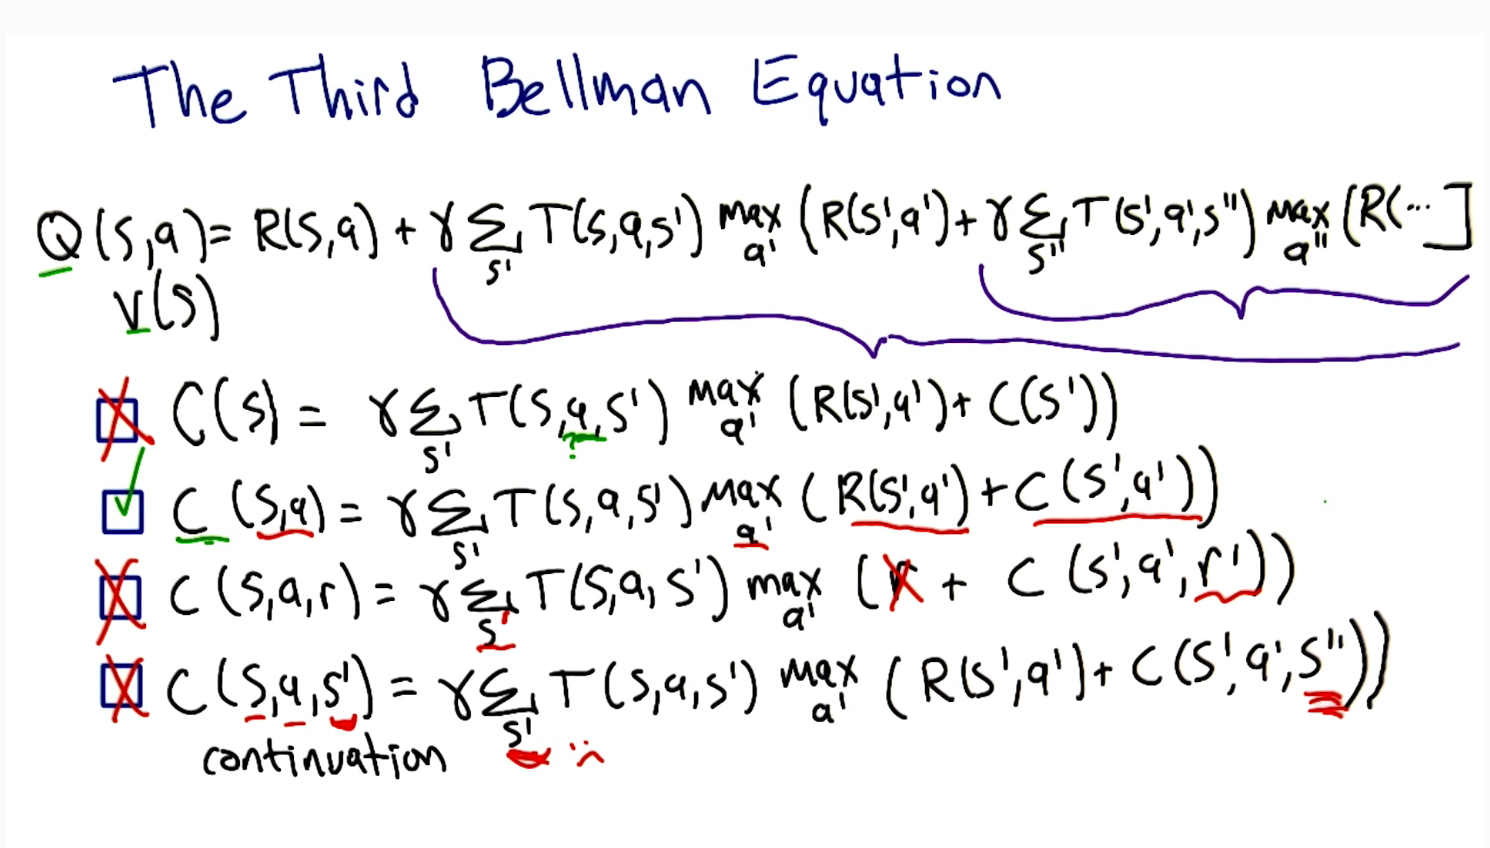 The Third Bellman Equation
Q(s,a)= R(s,a) + γ Σ_s' T(s,a,s') max_a' (R(s',a')+ γ Σ_s'' T(s',a',s'') max_a'' (R(...]
V(s)
C(s) = γ Σ_s' T(s,a,s') max_a' (R(s',a')+ C(s'))
?
C(s,a) = γ Σ_s' T(s,a,s') max_a' (R(s',a') + C(s',a'))
C(s,a,r) = γ Σ_s' T(s,a,s') max_a' (r + C(s',a',r'))
C(s,a,s') = γ Σ_s' T(s,a,s') max_a' (R(s',a')+ C(s',a',s''))
continuation